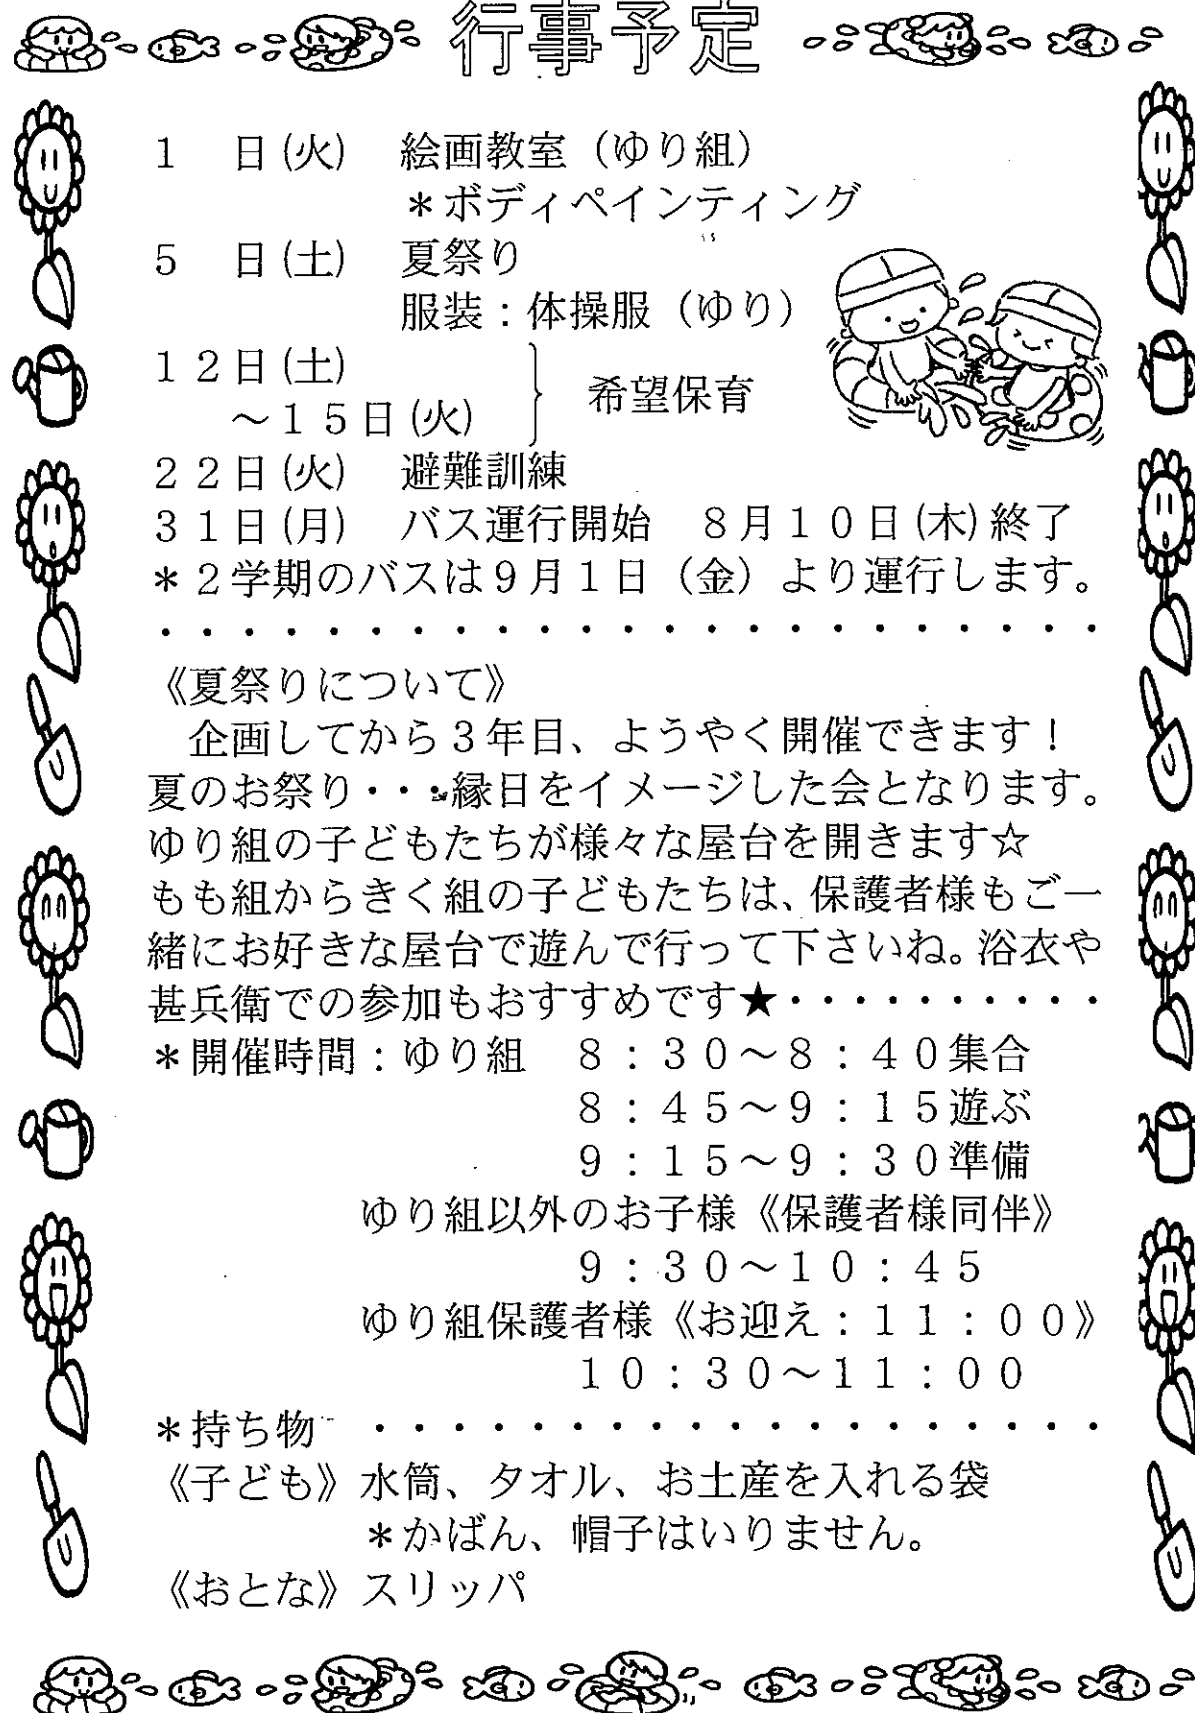 行事予定
1　日(火)　絵画教室（ゆり組）
＊ボディペインティング
5　日(土)　夏祭り
服装：体操服（ゆり）
１２日(土)
～１５日(火)　希望保育
２２日(火)　避難訓練
３１日(月)　バス運行開始　８月１０日(木)終了
＊２学期のバスは９月１日（金）より運行します。
・・・・・・・・・・・・・・・・・・・・・・・
《夏祭りについて》
企画してから３年目、ようやく開催できます！
夏のお祭り・・・縁日をイメージした会となります。
ゆり組の子どもたちが様々な屋台を開きます☆
もも組からきく組の子どもたちは、保護者様もご一
緒にお好きな屋台で遊んで行って下さいね。浴衣や
甚兵衛での参加もおすすめです★・・・・・・・・
＊開催時間：ゆり組　８：３０～８：４０集合
８：４５～９：１５遊ぶ
９：１５～９：３０準備
ゆり組以外のお子様《保護者様同伴》
９：３０～１０：４５
ゆり組保護者様《お迎え：１１：００》
１０：３０～１１：００
＊持ち物　・・・・・・・・・・・・・・・・・・
《子ども》水筒、タオル、お土産を入れる袋
＊かばん、帽子はいりません。
《おとな》スリッパ